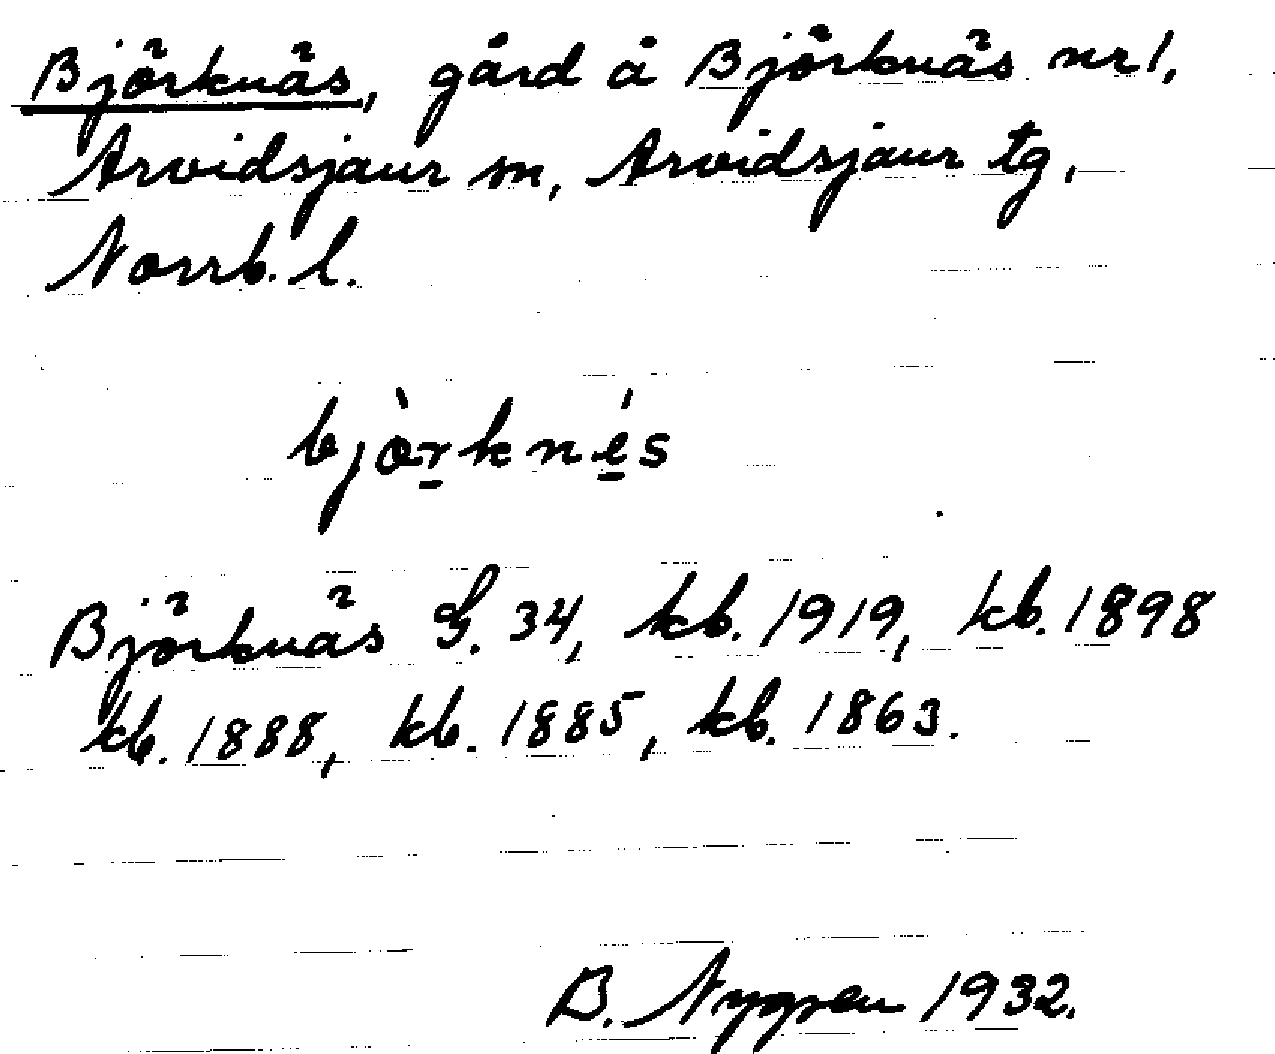 Björknäs, gård å Björknäs nr 1,
Arvidsjaur sn, Arvidsjaur tg,
Norrb. l.
bjòrknés
Björknäs G. 34, kb. 1919, kb. 1898
kb. 1888, kb. 1885, kb. 1863.
B. Nygren 1932.